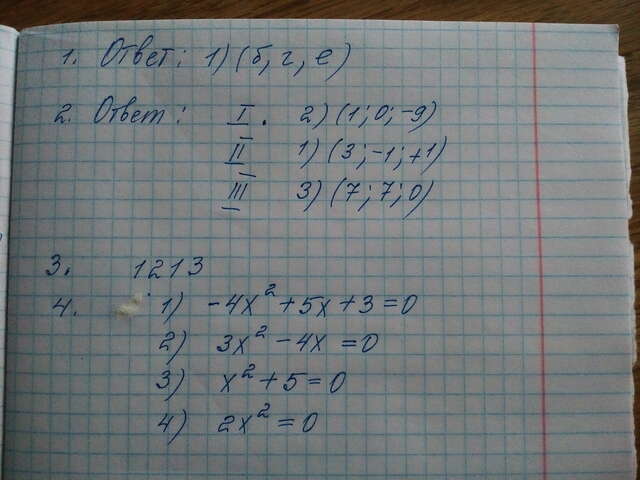 1. Ответ: 1) (б, г, е)
2. Ответ: I. 2) (1; 0; -9)
II 1) (3; -1; +1)
III 3) (7; 7; 0)
3. 1213
4. 1) -4x² + 5x + 3 = 0
2) 3x² - 4x = 0
3) x² + 5 = 0
4) 2x² = 0